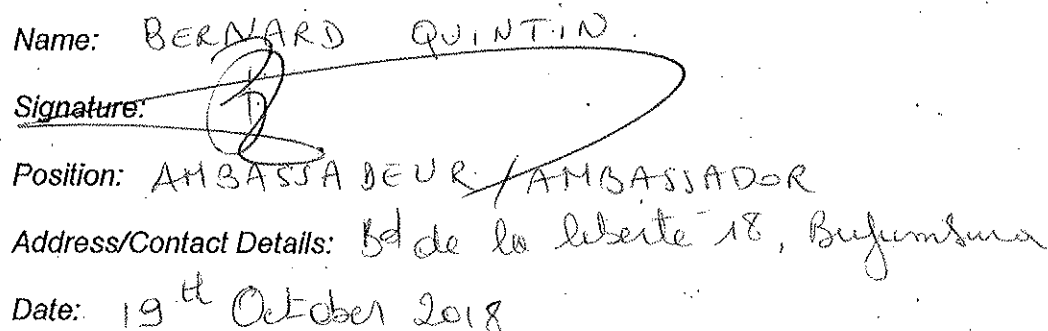 Name: BERNARD QUINTIN.
Signature:
Position: AMBASSADEUR / AMBASSADOR
Address/Contact Details: Bd de la liberté 18, Bujumbura
Date: 19th October 2018